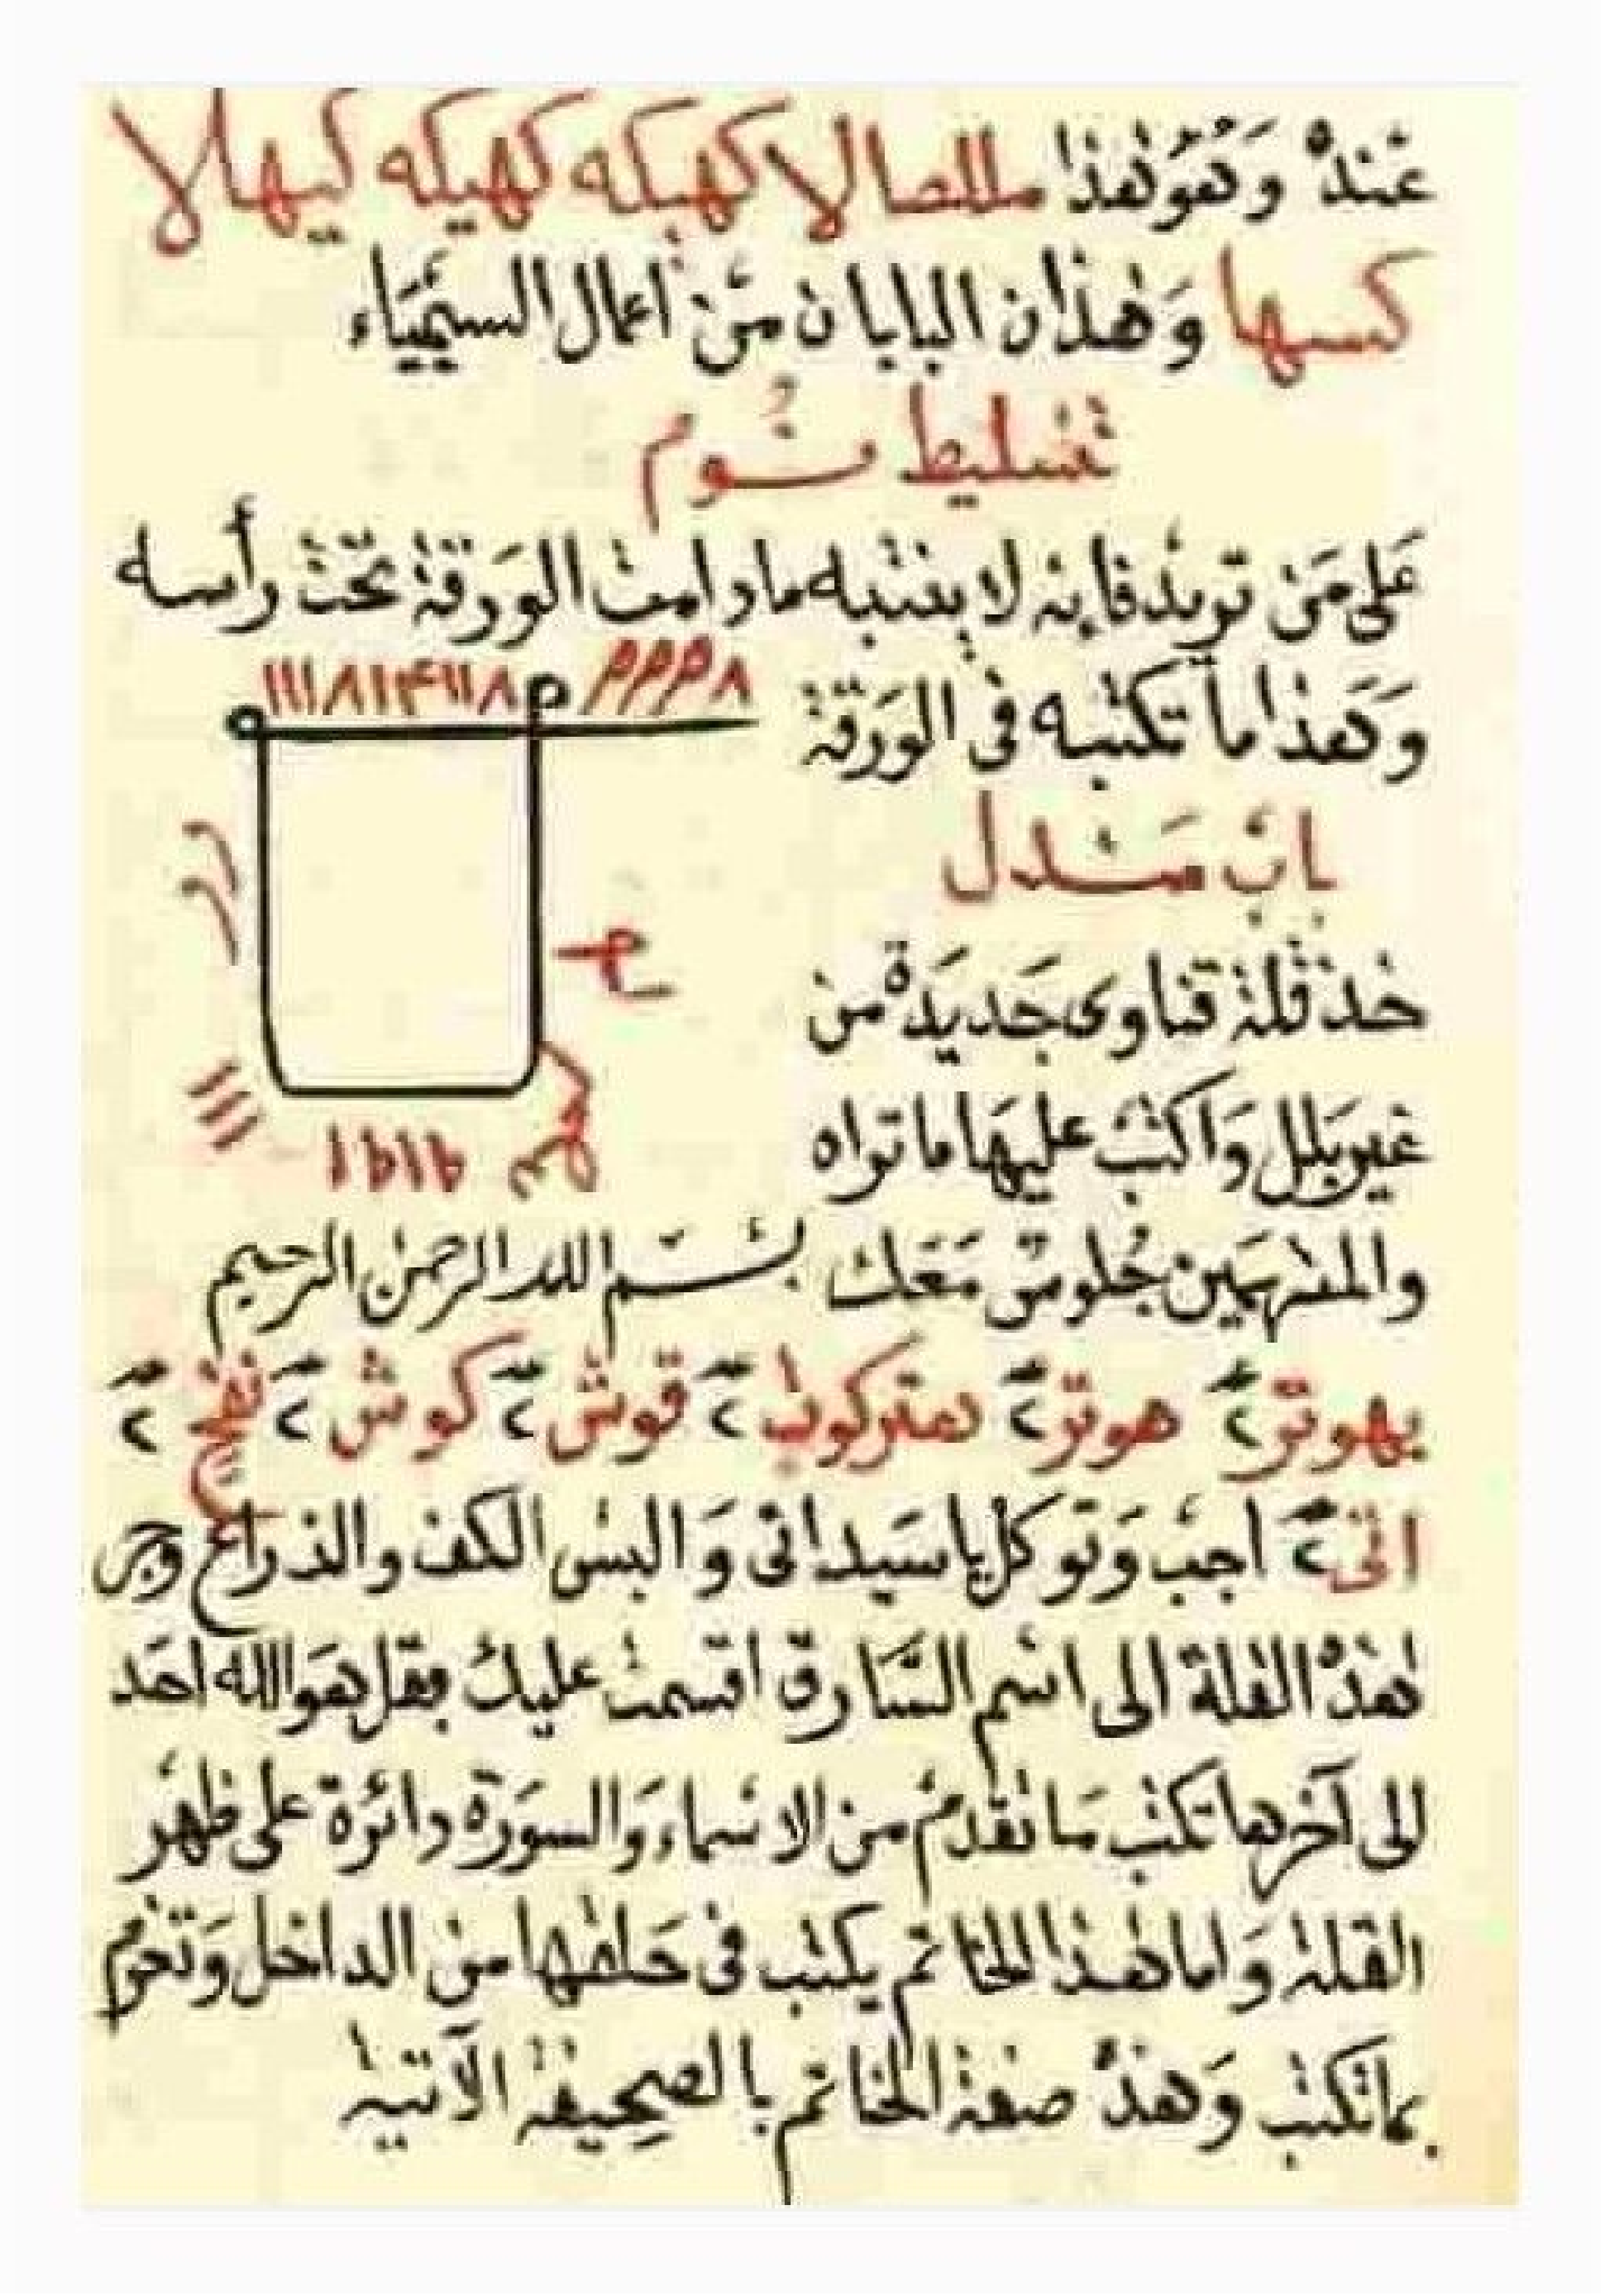 عنده وهو هذا مللصالا كهيكه كهيكه كيهلا
كسها وهذان البابان من أعمال السيمياء
تسليط نوم
على من تريد فإنه لا ينتبه مادامت الورقة تحت رأسه
وهذا ما تكتبه في الورقة
باب مندل
خذ قلة قناوى جديدة من
غير بلل واكتب عليها ما تراه
والمتهمين جلوس معك بسم الله الرحمن الرحيم
بهوتر ٢ هوتر ٢ ٢ قوش ٢ كوش ٢ ٢
٢ اجب وتوكل يا سيد والبس الكف والذراع وجر
هذه القلة الى اسم السارق اقسمت عليك بقل هو الله احد
الى آخرها تكتب ما تقدم من الاسماء والسورة دائرة على ظهر
القلة واما هذا الخاتم يكتب فى حلقها من الداخل وتعزم
بما تكتب وهذه صفة الخاتم بالصحيفة الآتية